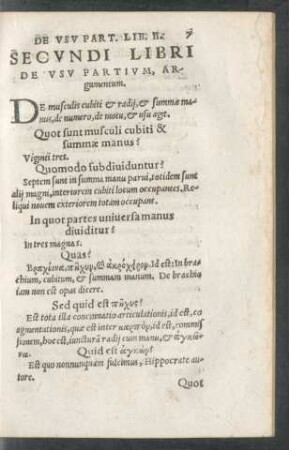 DE VSV PART. LIB. II. 7
SECVNDI LIBRI
DE VSV PARTIVM, AR-
gumentum.
DE musculis cubiti & radij, & summæ ma-
nus, de numero, de motu, & usu agit.
Quot sunt musculi cubiti &
summæ manus?
Viginti tres.
Quomodo subdiuiduntur?
Septem sunt in summa manu parui, totidem sunt
alij magni, interiorem cubiti locum occupantes, Re-
liqui nouem exteriorem totam occupant.
In quot partes uniuersa manus
diuiditur?
In tres magnas.
Quas?
Βραχίονα, πῆχυν, & ἀκρόχειρον. Id est: In bra-
chium, cubitum, & summam manum. De brachio
iam non est opus dicere.
Sed quid est πῆχυς?
Est tota illa concinnatio articulationis, id est, co
agmentationis, quæ est inter καρπόν, id est, commis
sionem, hoc est, iuncturā radij cum manu, & ἀγκῶ-
να.
Quid est ἀγκών?
Est quo nonnunquam fulcimur, Hippocrate au-
tore.
Quot